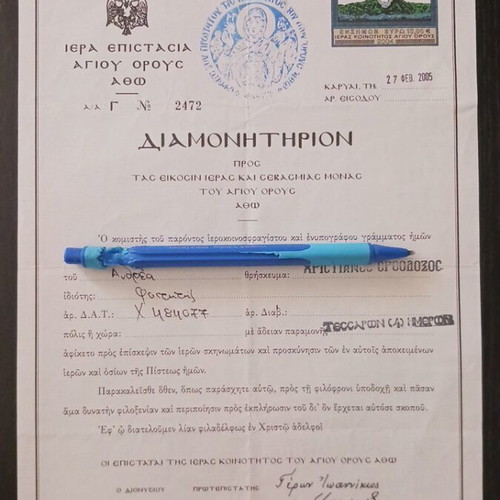 ΙΕΡΑ ΕΠΙΣΤΑΣΙΑ
ΑΓΙΟΥ ΟΡΟΥΣ
ΑΘΩ
Α/Α Γ № 2472
ΕΝΣΗΜΟΝ ΕΥΡΩ 10,00 €
ΙΕΡΑΣ ΚΟΙΝΟΤΗΤΟΣ ΑΓΙΟΥ ΟΡΟΥΣ
2004
ΚΑΡΥΑΙ, ΤΗ 27 ΦΕΒ. 2005
ΑΡ. ΕΙΣΟΔΟΥ
ΔΙΑΜΟΝΗΤΗΡΙΟΝ
ΠΡΟΣ
ΤΑΣ ΕΙΚΟΣΙΝ ΙΕΡΑΣ ΚΑΙ ΣΕΒΑΣΜΙΑΣ ΜΟΝΑΣ
ΤΟΥ ΑΓΙΟΥ ΟΡΟΥΣ
ΑΘΩ
Ὁ κομιστὴς τοῦ παρόντος ἱεροκοινοσφραγίστου καὶ ἐνυπογράφου γράμματος ἡμῶν
τοῦ Ανδρέα θρήσκευμα: ΧΡΙΣΤΙΑΝΟΣ ΟΡΘΟΔΟΞΟΣ
ἰδιότης: Φοιτητής
ἀρ. Δ.Α.Τ.: Χ 484077 ἀρ. Διαβ.:
πόλις ἢ χώρα: μὲ ἄδειαν παραμονῆς ΤΕΣΣΑΡΩΝ (4) ΗΜΕΡΩΝ
ἀφίκετο πρὸς ἐπίσκεψιν τῶν ἱερῶν σκηνωμάτων καὶ προσκύνησιν τῶν ἐν αὐτοῖς ἀποκειμένων
ἱερῶν καὶ ὁσίων τῆς Πίστεως ἡμῶν.
Παρακαλεῖσθε ὅθεν, ὅπως παράσχητε αὐτῷ, πρὸς τῇ φιλόφρονι ὑποδοχῇ καὶ πᾶσαν
ἅμα δυνατὴν φιλοξενίαν καὶ περιποίησιν πρὸς ἐκπλήρωσιν τοῦ δι' ὃν ἔρχεται αὐτόσε σκοποῦ.
Ἐφ' ᾧ διατελοῦμεν λίαν φιλαδέλφως ἐν Χριστῷ ἀδελφοὶ
ΟΙ ΕΠΙΣΤΑΤΑΙ ΤΗΣ ΙΕΡΑΣ ΚΟΙΝΟΤΗΤΟΣ ΤΟΥ ΑΓΙΟΥ ΟΡΟΥΣ ΑΘΩ
Ο ΔΙΟΝΥΣΙΟΥ ΠΡΩΤΕΠΙΣΤΑΤΗΣ Γέρων Ἰωαννίκιος